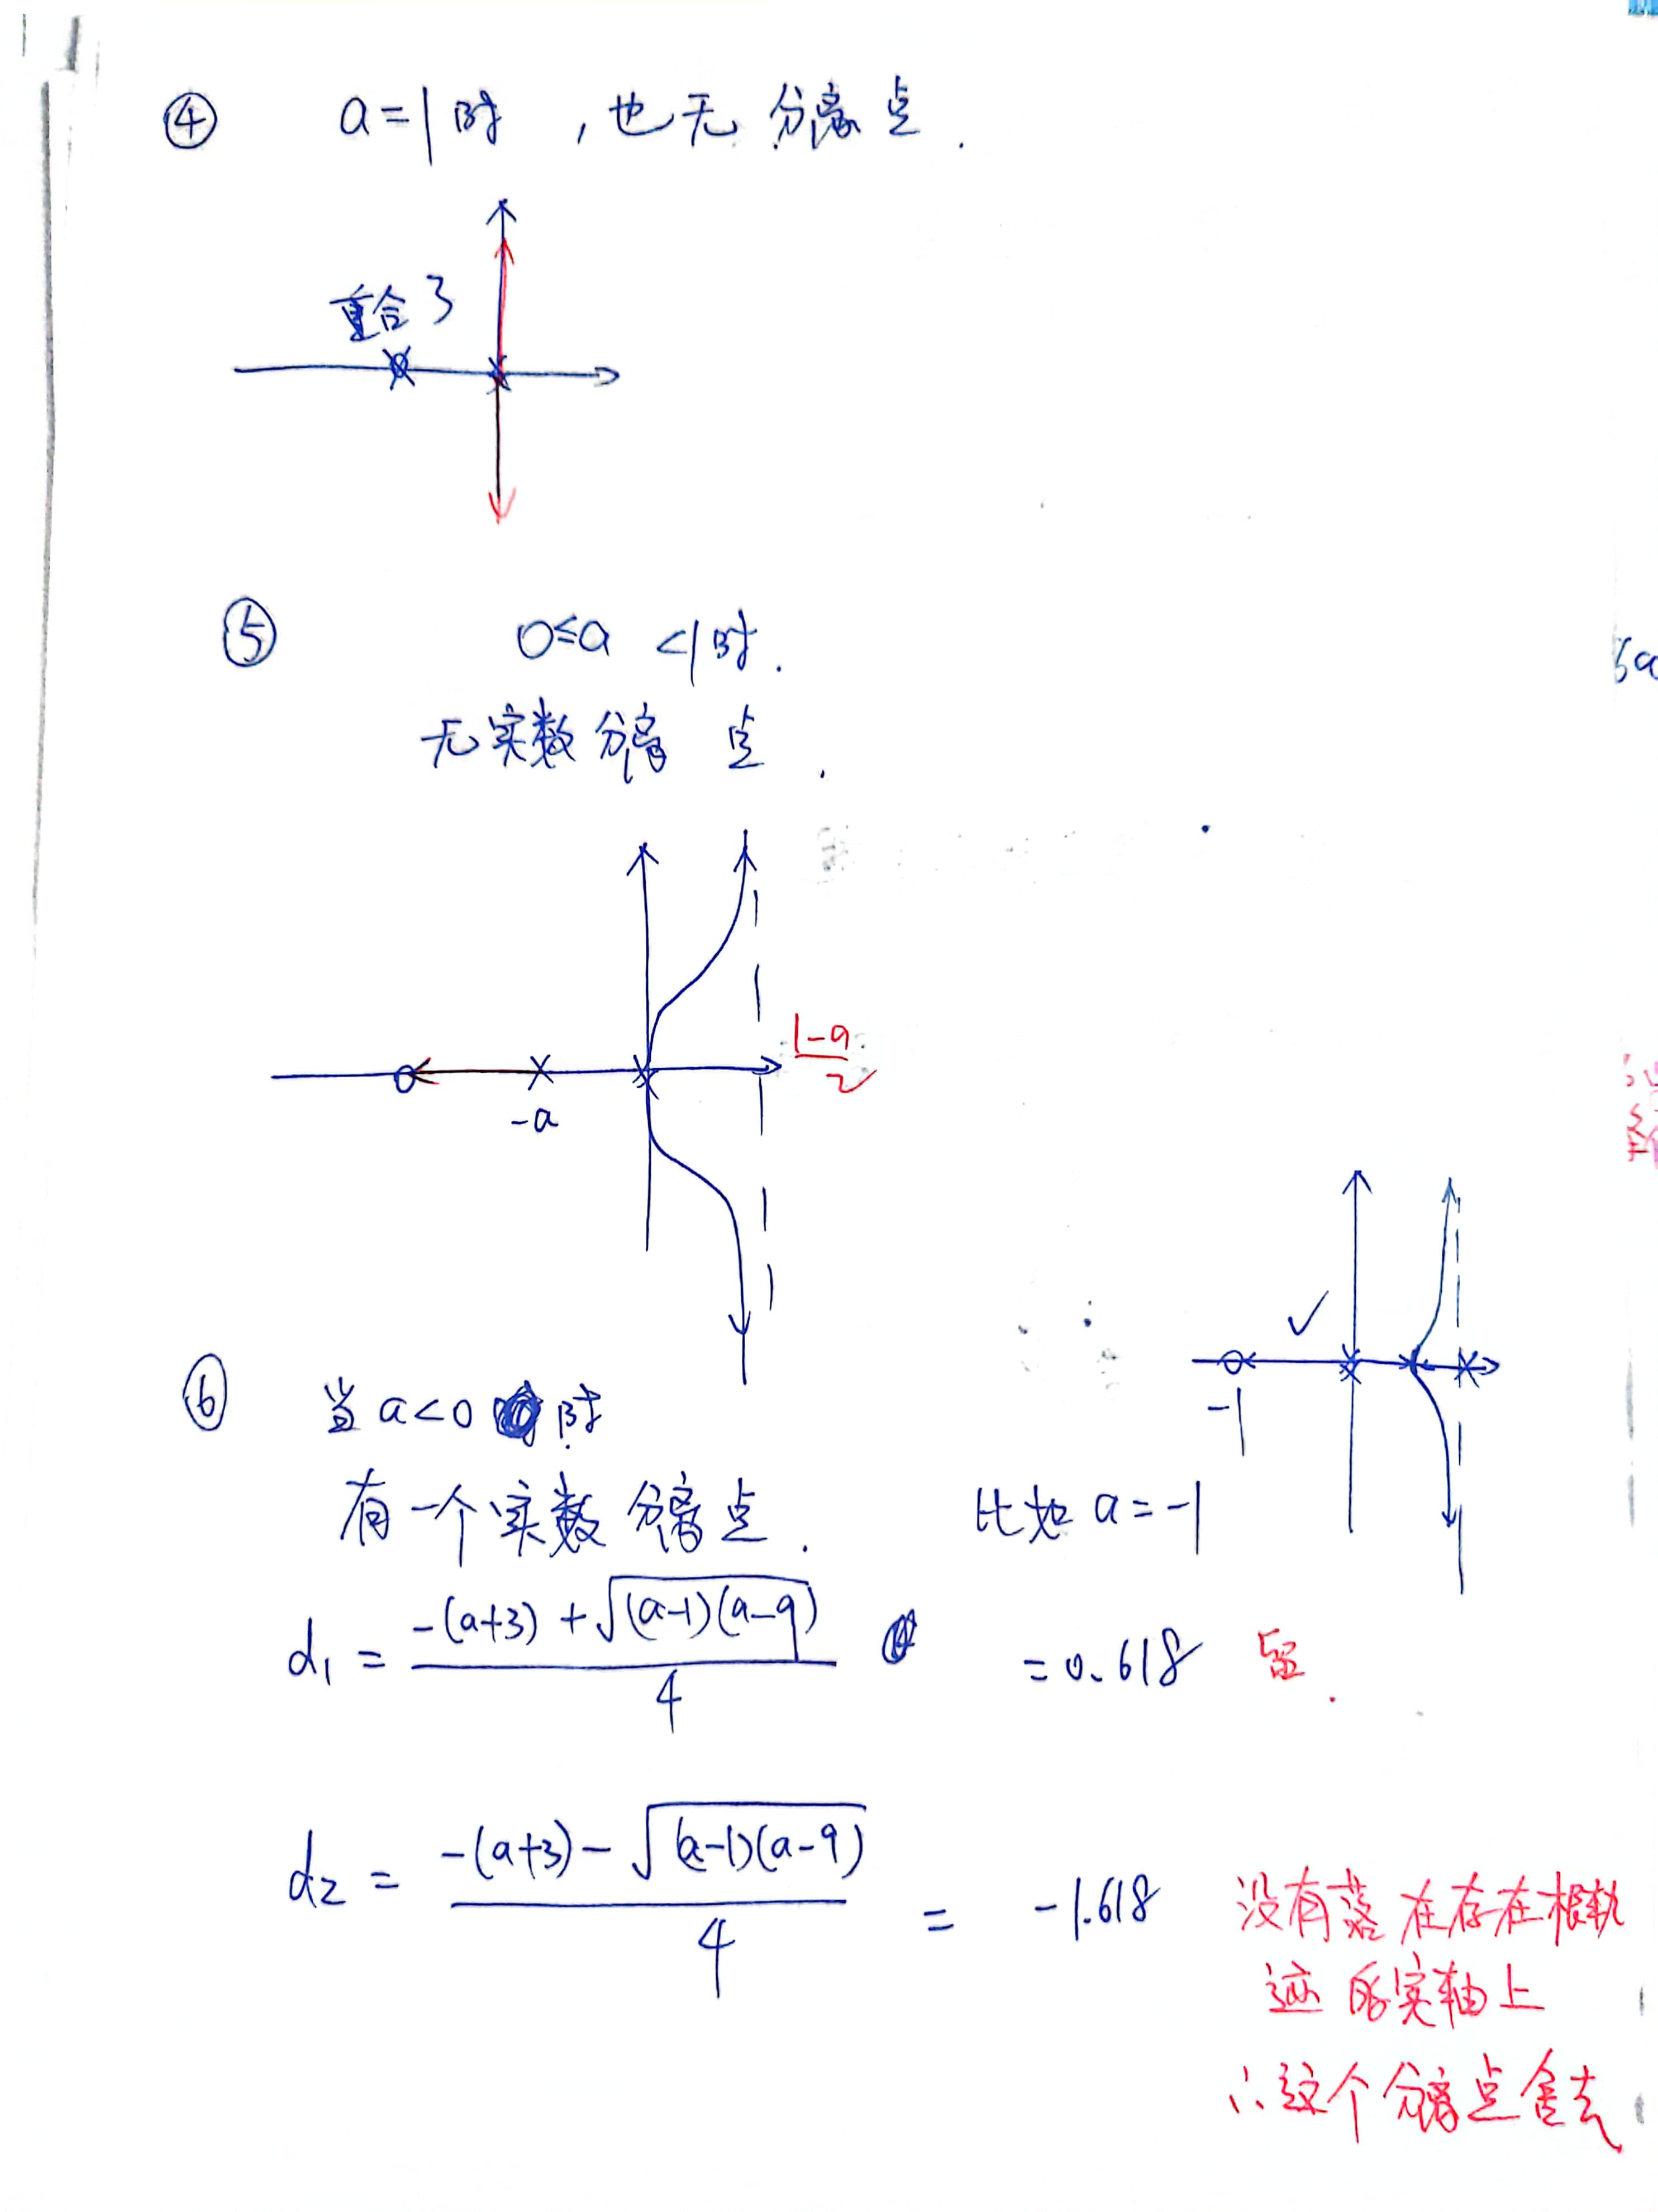 ④ a=1时，也无分离点.
重合了
⑤ 0≤a<1时.
无实数分离点.
1-a/2
-a
-1
⑥ 当a<0时
有一个实数分离点.
比如 a=-1
d₁ = (-(a+3)+√((a-1)(a-9)))/4
=0.618 留.
d₂ = (-(a+3)-√((a-1)(a-9)))/4 = -1.618
没有落在存在根轨
迹的实轴上
∴这个分离点舍去